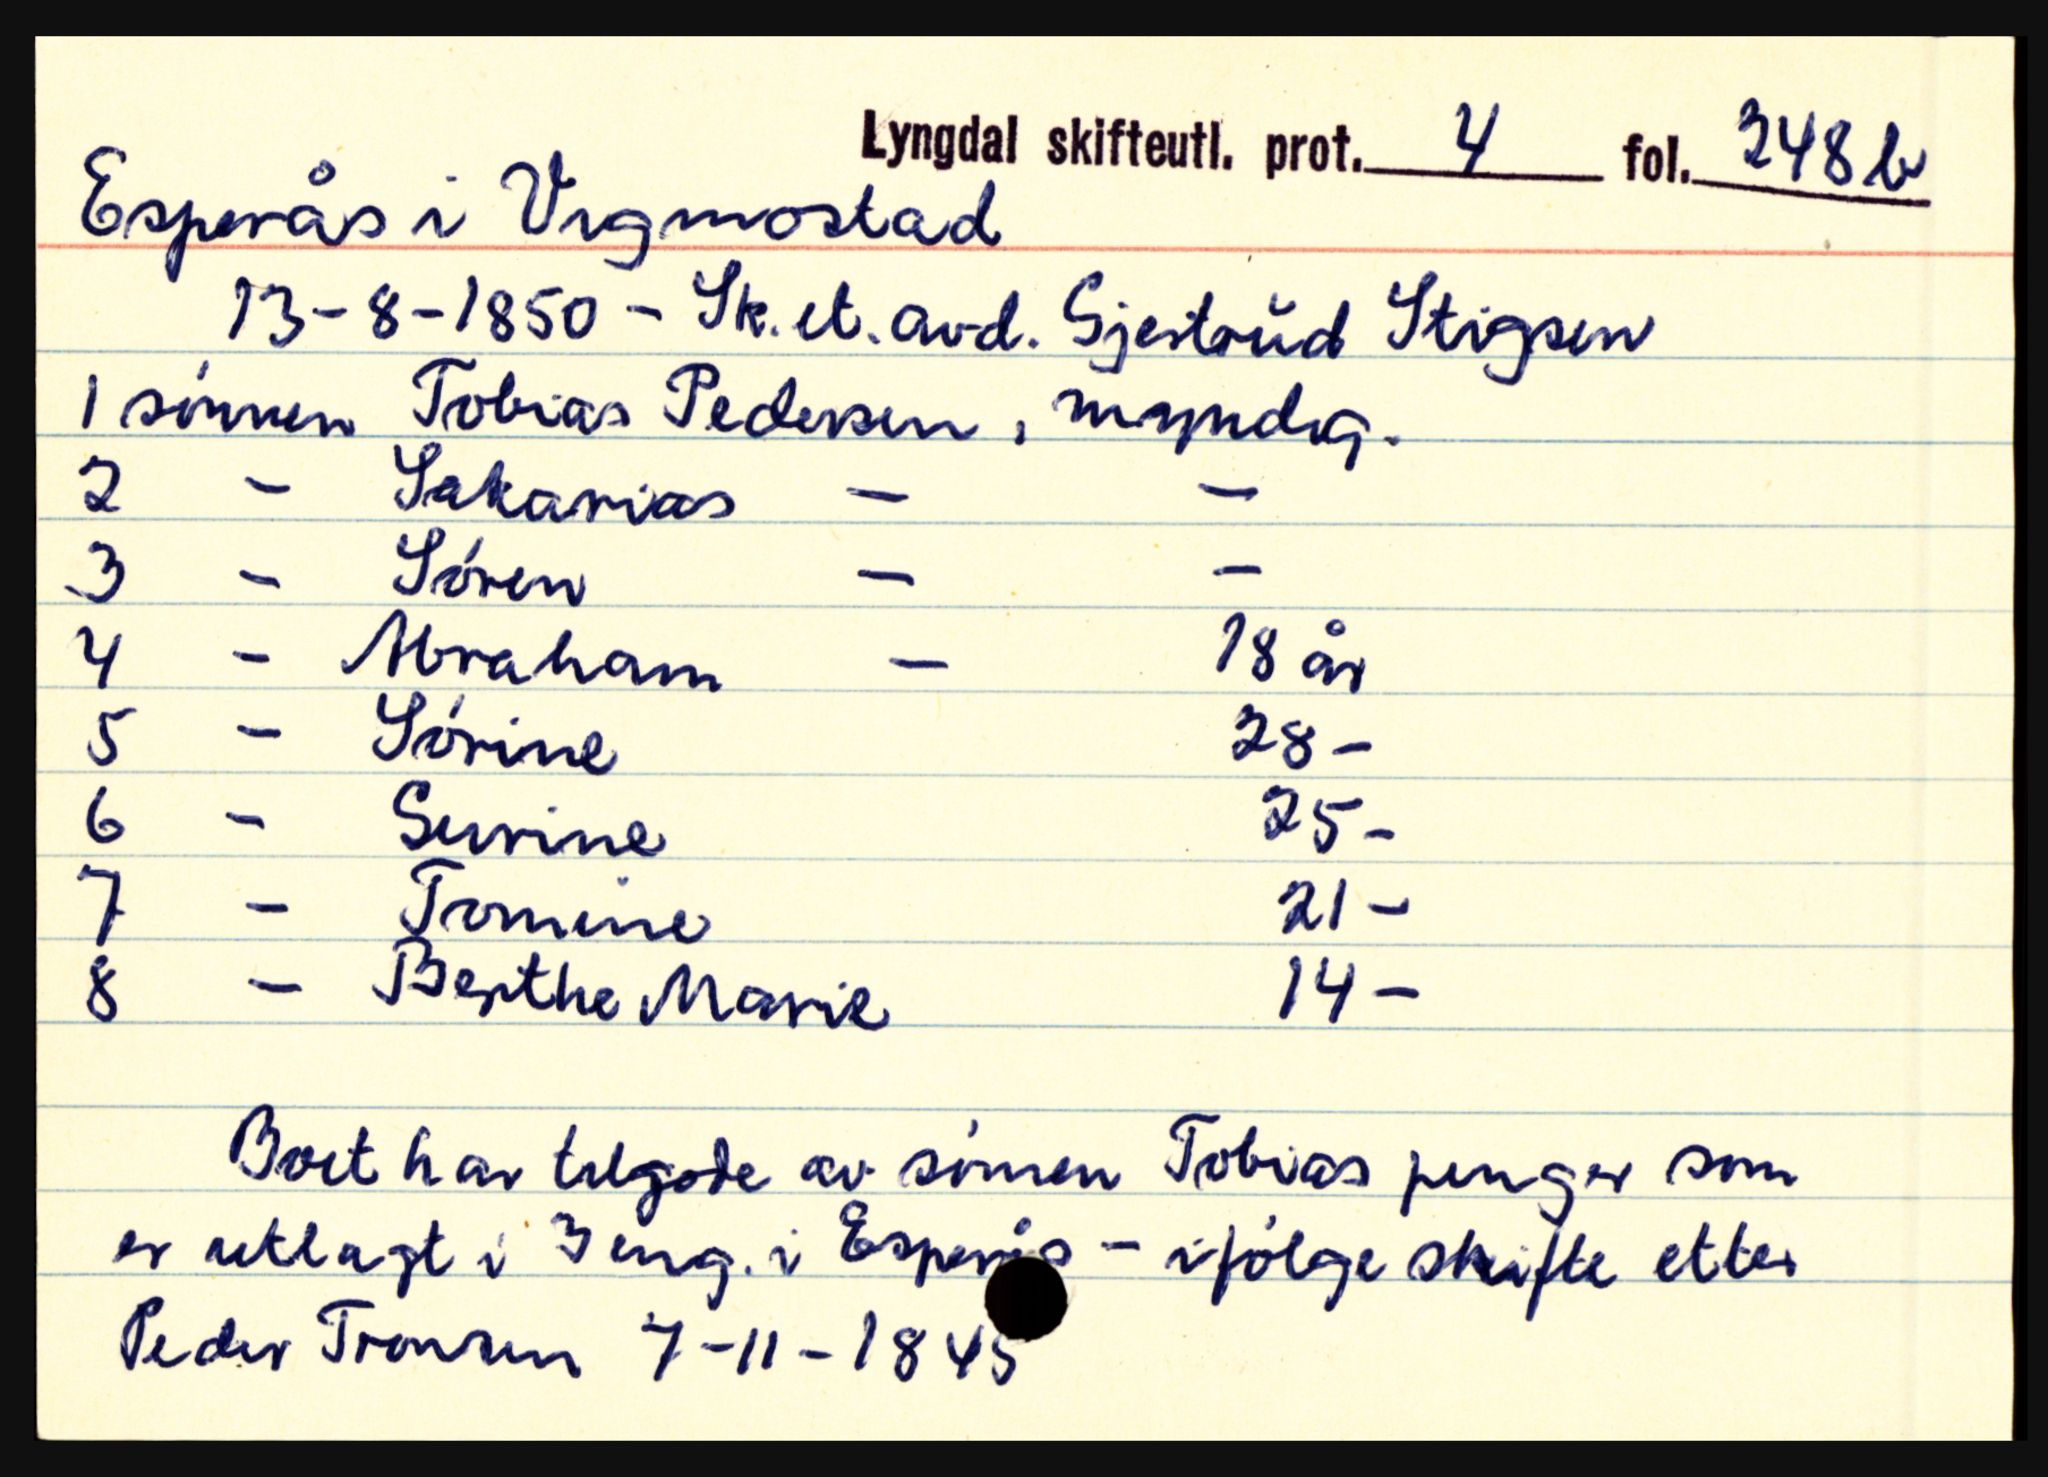 Lyngdal skifteutl. prot. 4 fol. 248 b
Esperås i Vigmostad
13-8-1850 - Sk. et. avd. Gjertrud Stigsen
1 sønnen Tobias Pedersen, myndig.
2 - Sakarias - -
3 - Sören - -
4 - Abraham - 18 år
5 - Sörine 28 -
6 - Gurine 25 -
7 - Tomine 21 -
8 - Berthe Marie 14 -
Boet har tilgode av sønnen Tobias penger som
er utlagt i 3 eng. i Esperås - ifölge skifte etter
Peder Tronsen 7-11-1845